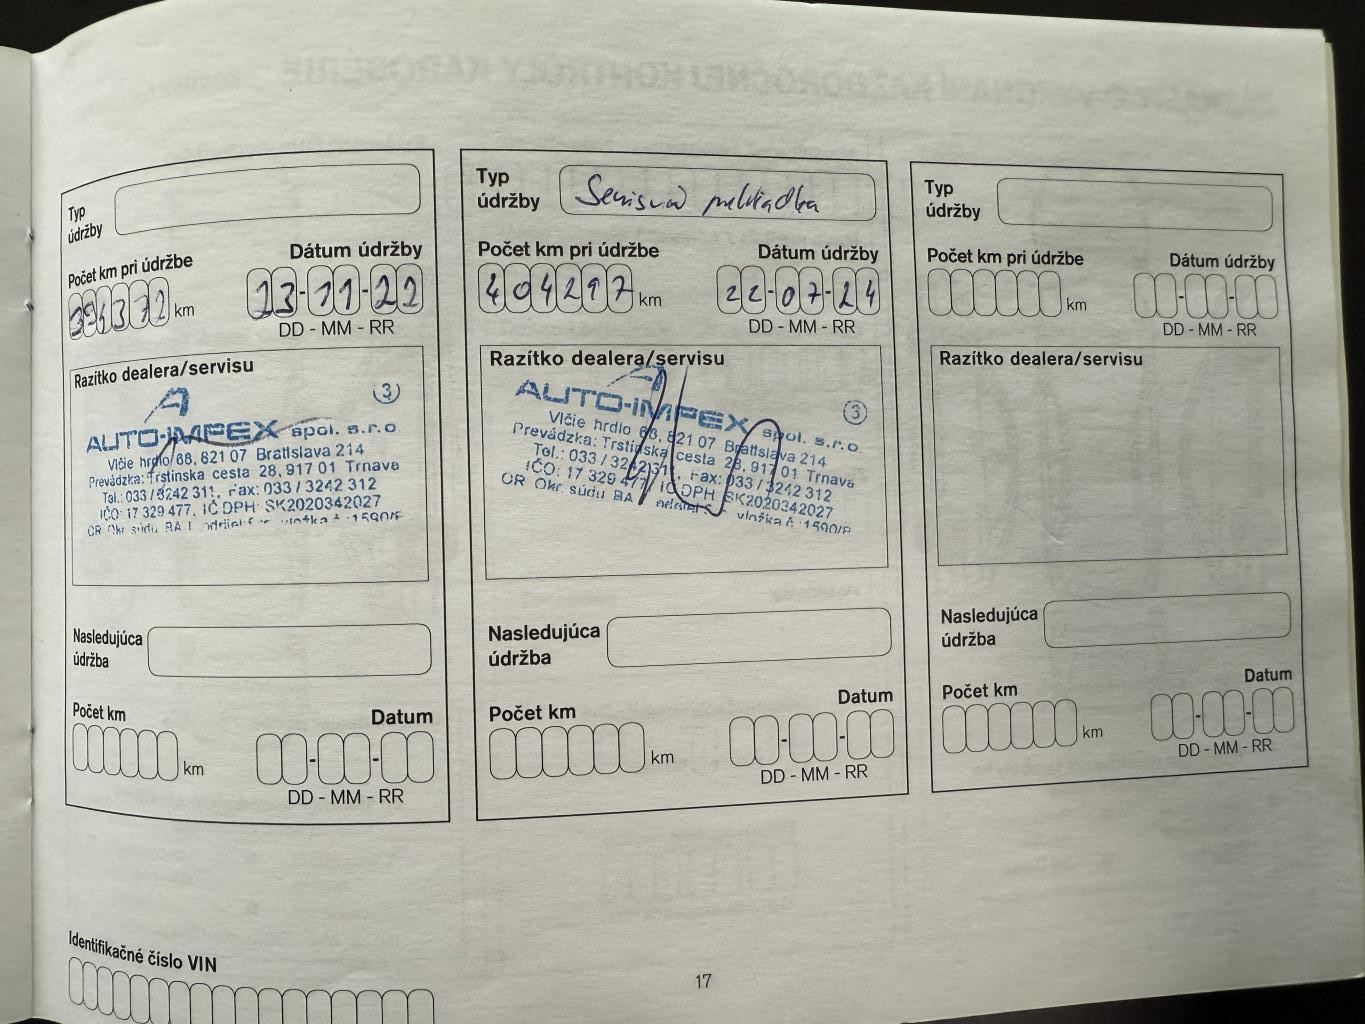 Typ
údržby
Počet km pri údržbe
Dátum údržby
394372 km
23-11-22
DD - MM - RR
Razítko dealera/servisu
3
AUTO-IMPEX spol. s.r.o.
Vlčie hrdlo 68, 821 07 Bratislava 214
Prevádzka: Trstínska cesta 28, 917 01 Trnava
Tel.: 033 / 3242 311, Fax: 033 / 3242 312
IČO: 17 329 477, IČ DPH SK2020342027
OR Okr. súdu BA I vložka č. 1590/B
Nasledujúca
údržba
Počet km
Datum
km
DD - MM - RR
Identifikačné číslo VIN
Typ
údržby
Servisná prehliadka
Počet km pri údržbe
Dátum údržby
404297 km
22-07-24
DD - MM - RR
Razítko dealera/servisu
3
AUTO-IMPEX spol. s.r.o.
Vlčie hrdlo 68, 821 07 Bratislava 214
Prevádzka: Trstínska cesta 28, 917 01 Trnava
Tel.: 033 / 3242 311, Fax: 033 / 3242 312
IČO: 17 329 477, IČ DPH SK2020342027
OR Okr. súdu BA vložka č. 1590/B
Nasledujúca
údržba
Počet km
Datum
km
DD - MM - RR
Typ
údržby
Počet km pri údržbe
Dátum údržby
km
DD - MM - RR
Razítko dealera/servisu
Nasledujúca
údržba
Počet km
Datum
km
DD - MM - RR
17